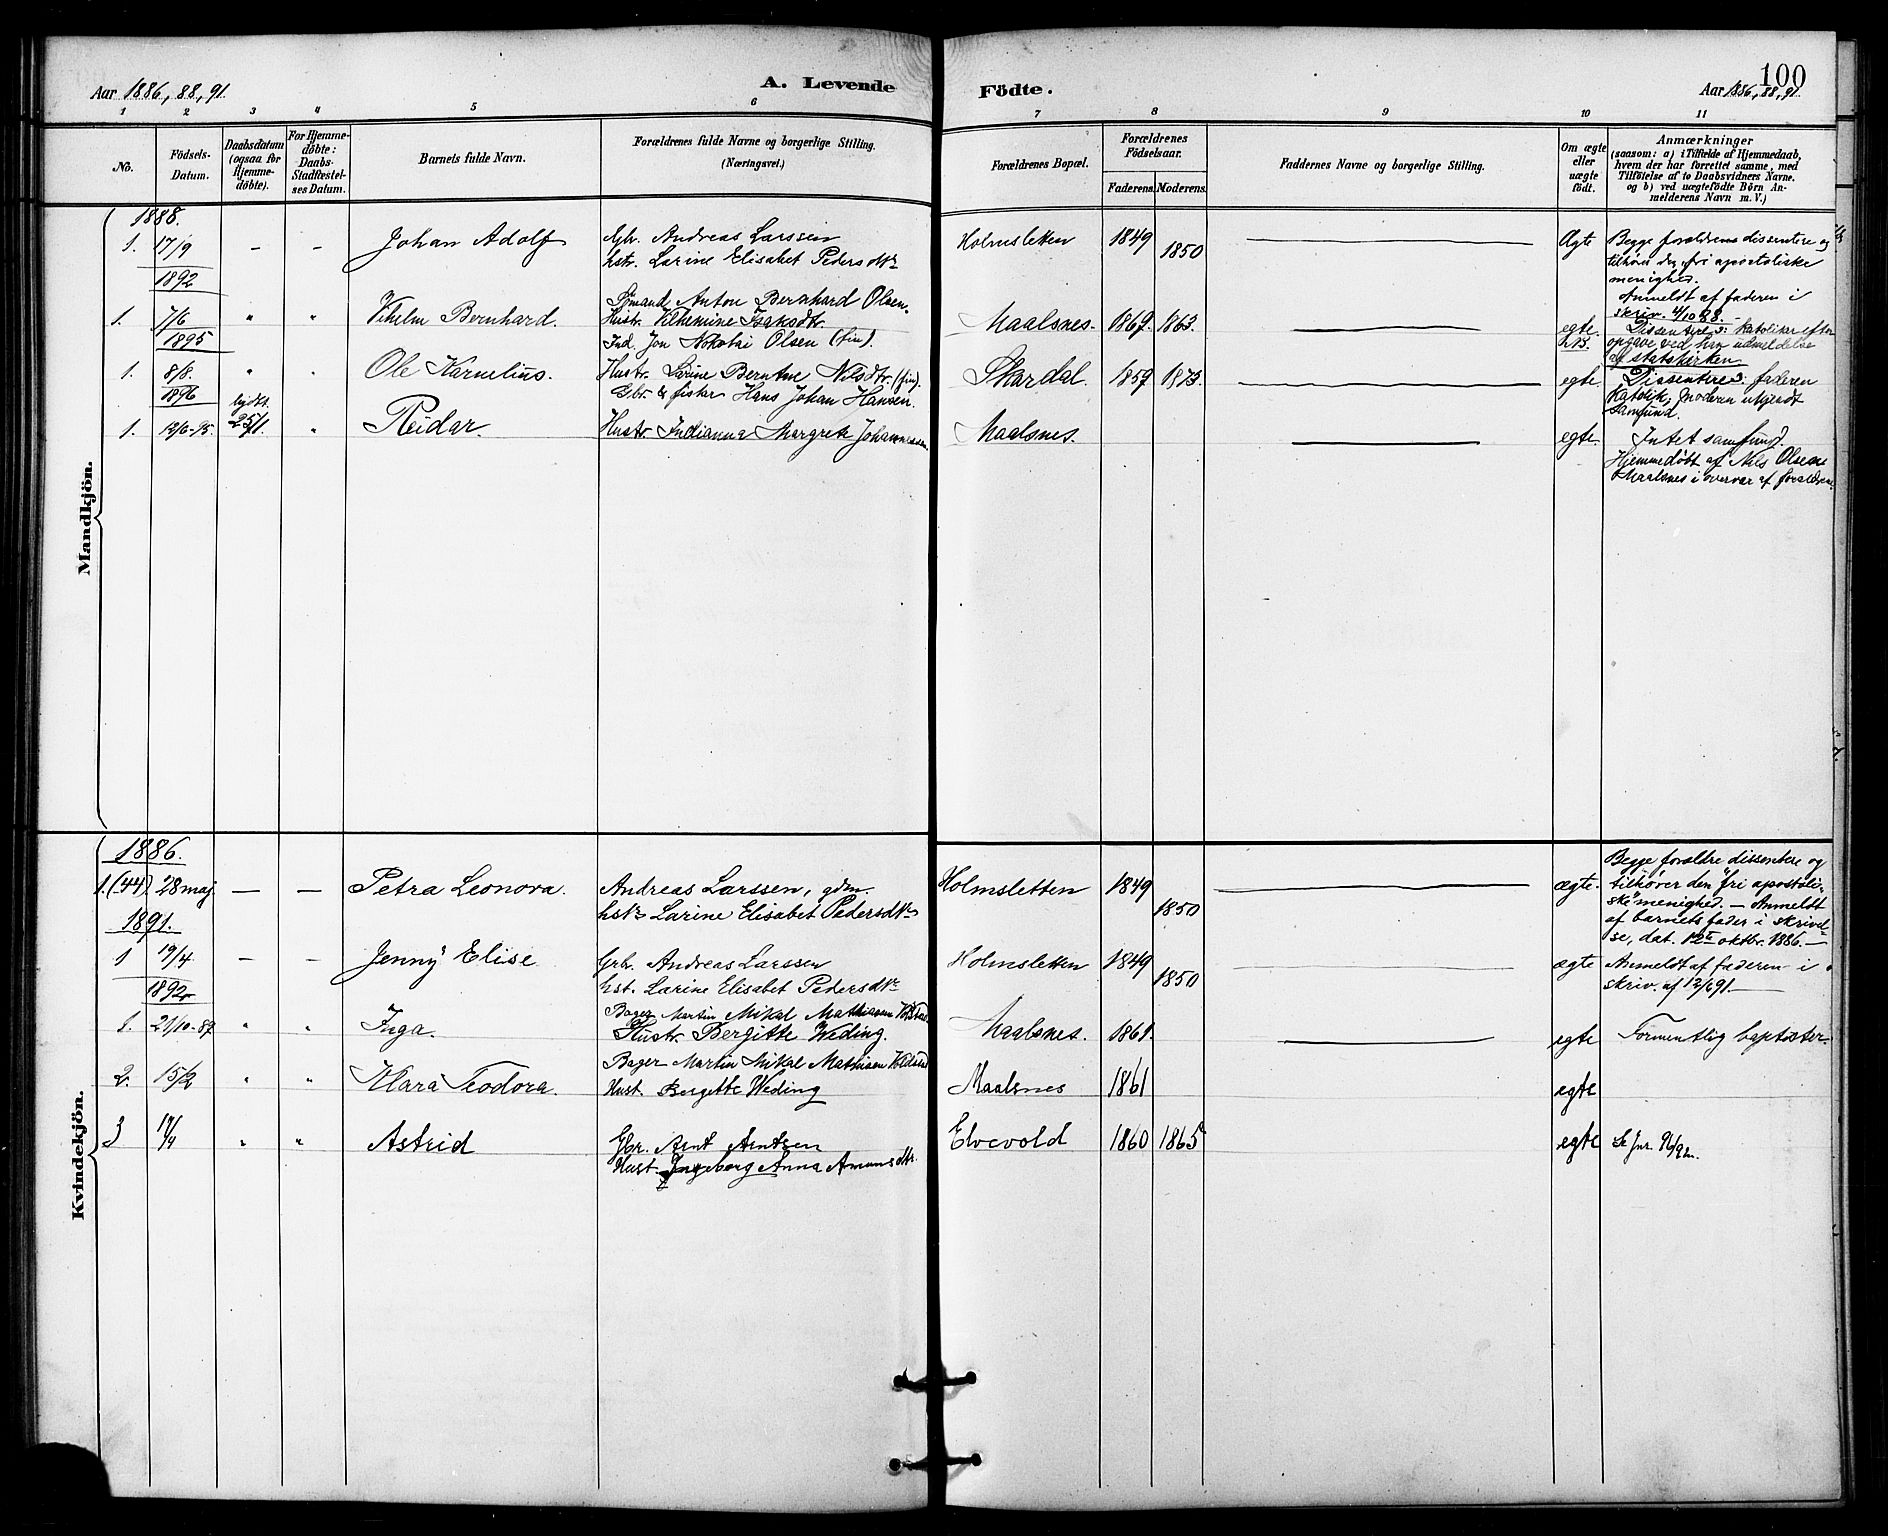 Aar 1886, 88, 91.
A. Levende
Födte.
100
Aar 1886, 88, 91.
1 2 3 4 5 6 7 8 9 10 11
No.
Födsels-
Datum.
Daabsdatum
(ogsaa for
Hjemme-
döbte).
For Hjemme-
döbte:
Daabs-
Stadfæstel-
ses Datum.
Barnets fulde Navn.
Forældrenes fulde Navne og borgerlige Stilling.
(Næringsvei.)
Forældrenes Bopæl.
Forældrenes
Födselsaar.
Faderens. Moderens.
Faddernes Navne og borgerlige Stilling.
Om ægte
eller
uægte
födt.
Anmærkninger
(saasom: a) i Tilfælde af Hjemmedaab,
hvem der har forrettet samme, med
Tilföielse af to Daabsvidners Navne,
og b) ved uægtefödte Börn An-
melderens Navn m. V.)
Mandkjön.
1888.
1. 17/9 - - Johan Adolf
Gbr. Andreas Larssen
hstr. Larine Elisabet Pedersdtr
Holmsletten 1849 1850 Ægte
Begge forældrene dissentere og
tilhører den fri apostoliske
menighed.
Anmeldt af faderen i
skriv. 4/10 88.
1892
1. 7/6 " " Vilhelm Bernhard.
Sømand Anton Bernhard Olsen.
Hustr. Vilhemine Isaksdtr.
Maalsnes. 1867. 1863. egte.
Dissentere: katoliker efter
opgave ved sin udmeldelse
af statskirken
1895
1. 8/8. " " Ole Kornelius.
Ind. Jon Nikolai Olsen (fin).
Hustr. Larine Berntine Nilsdtr. (fin).
Skardal. 1857 1873. egte.
Dissentere: faderen
katolik, moderen ukjendt
samfund.
1896
1. 12/6-95. 25/1. " Reidar.
Gbr. & fisker Hans Johan Hansen.
Hustr. Indianna Margrete Johannessen
Maalsnes. egte.
Intet samfund.
Hjemmedøbt af Nils Olsen
Maalsnes i overvær af forældrene.
Kvindekjön.
1886.
1. (44). 28 maj — — Petra Leonora.
Andreas Larssen, gdm.
hstr Larine Elisabet Pedersdtr
Holmsletten 1849 1850 ægte.
Begge forældre dissentere og
tilhører den "fri apostoli-
ske" menighed. — Anmeldt
af barnets fader i skrivel-
se, dat. 12te oktbr. 1886. —
1891.
1 19/4 - - Jenny Elise
Grbr. Andreas Larssen
hst. Larine Elisabet Pedersdtr
Holmsletten 1849 1850 ægte
Anmeldt af faderen i
skriv. af 12/6 91.
1892
1. 21/10-89. " " Inga.
Bager Martin Mikal Mathiasen
Hustr. Bergitte Weding.
Maalsnes. 1861. egte
Formentlig baptister.
2. 15/2 " " Klara Teodora.
Bager Martin Mikal Mathisen
Hust. Bergette Weding
Maalsnes 1861 egte
3 17/4 " " Astrid
Gbr. Arnt Arntsen
Hust. Ingeborg Anna Amundsdtr.
Elvevold 1860 1865 egte
Se Jnr. 96/92.